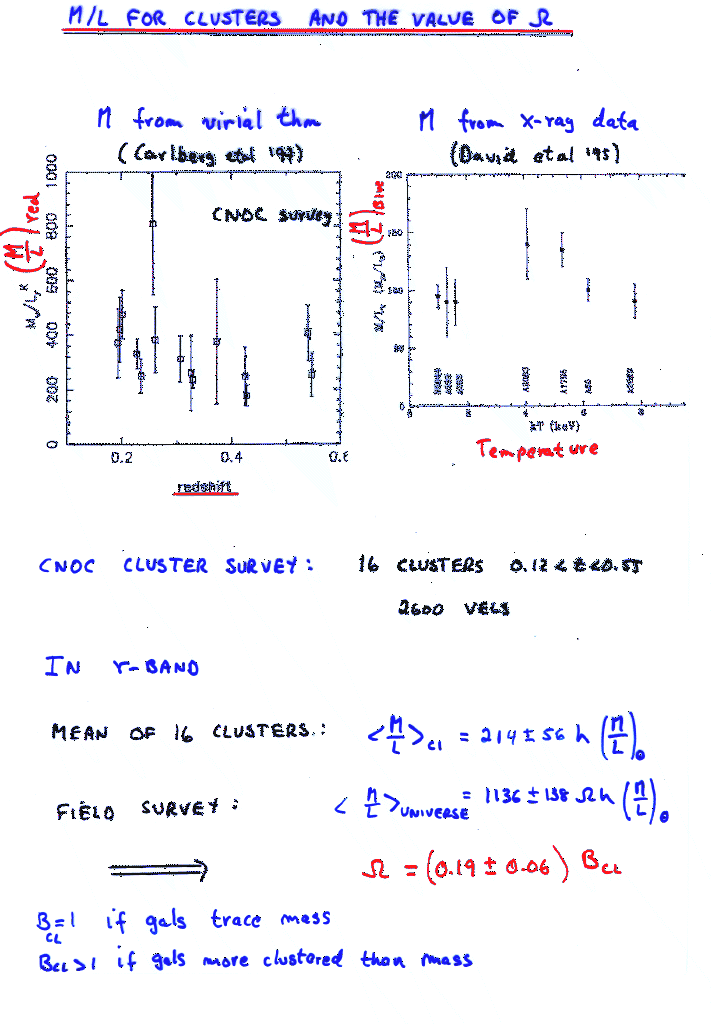 M/L FOR CLUSTERS AND THE VALUE OF Ω
M from virial thm
(Carlberg et al '97)
M from X-ray data
(David et al '95)
CNOC survey
(M/L) red
1000
800
600
400
200
0
0.2
0.4
0.6
redshift
(M/L) Blue
200
150
100
50
0
0
2
4
6
8
kT (keV)
Temperature
CNOC CLUSTER SURVEY: 16 CLUSTERS 0.12 < z < 0.55
2600 VELS
IN r-BAND
MEAN OF 16 CLUSTERS: <M/L>CL = 214 ± 56 h (M/L)⊙
FIELD SURVEY: <M/L>UNIVERSE = 1136 ± 138 Ω h (M/L)⊙
⟹ Ω = (0.19 ± 0.06) BCL
BCL = 1 if gals trace mass
BCL > 1 if gals more clustered than mass